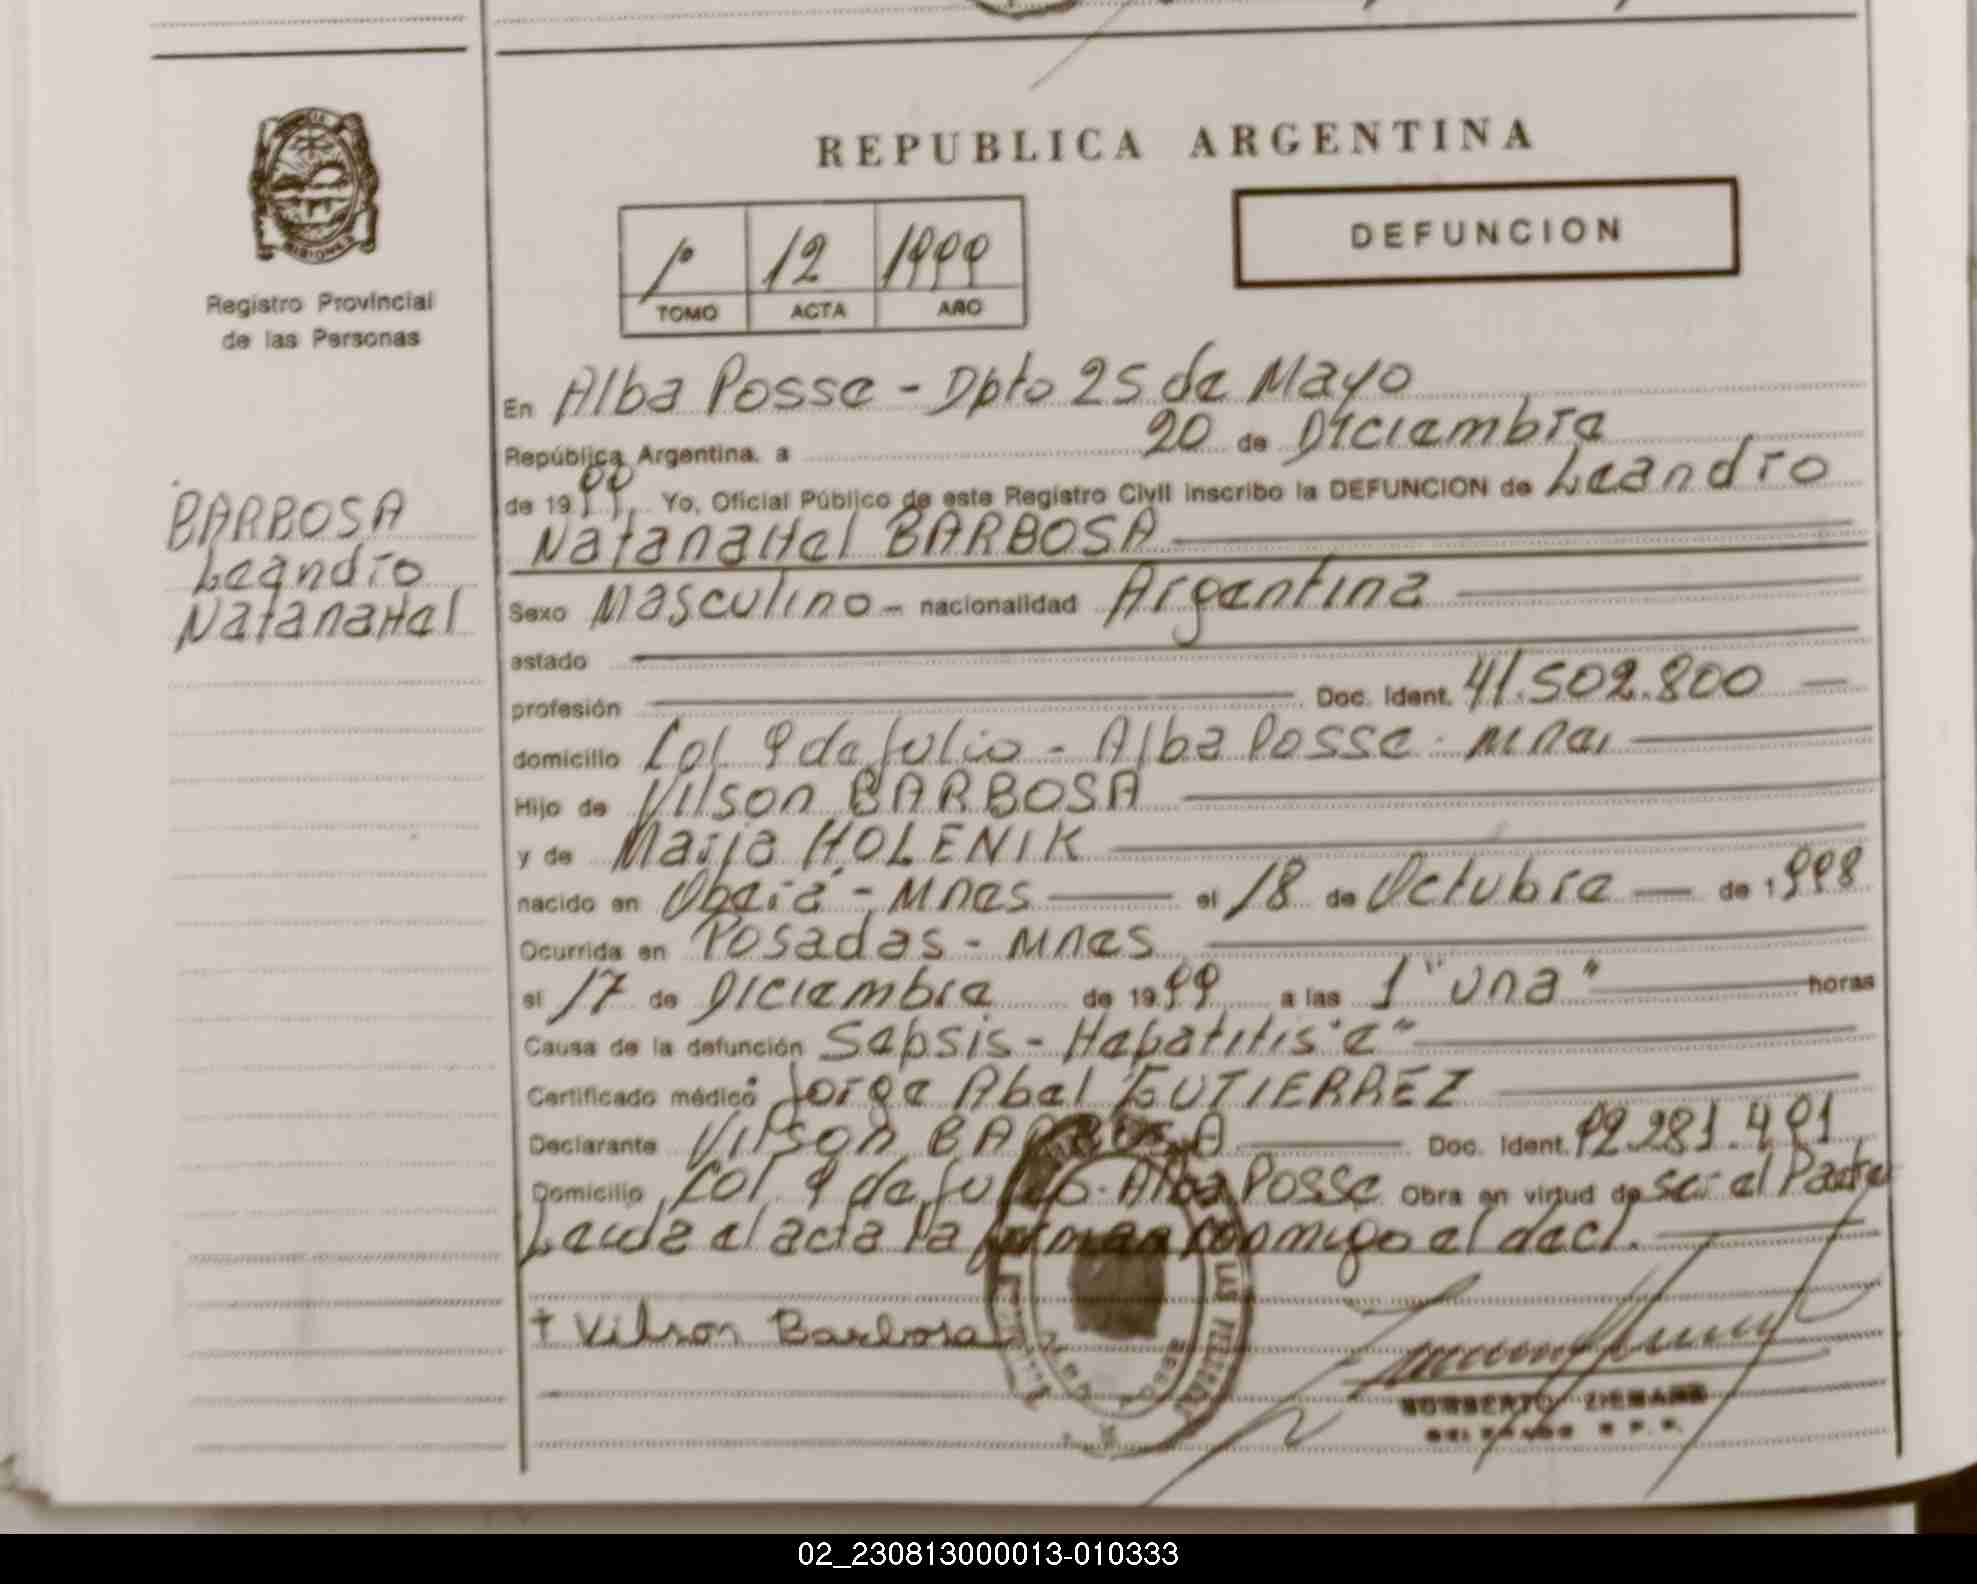 REPUBLICA ARGENTINA
DEFUNCION
1º 12 1999
TOMO ACTA AÑO
Registro Provincial
de las Personas
BARBOSA
Leandro
Natanahel
En Alba Posse - Dpto 25 de Mayo
República Argentina, a 20 de Diciembre
de 1999, Yo, Oficial Público de este Registro Civil inscribo la DEFUNCION de Leandro
Natanahel BARBOSA
Sexo Masculino - nacionalidad Argentina
estado
profesión Doc. Ident. 41.502.800
domicilio Col. 9 de Julio - Alba Posse - Mnes
Hijo de Vilson BARBOSA
y de Maria HOLENIK
nacido en Oberá - Mnes el 18 de Octubre de 1998
Ocurrida en Posadas - Mnes
el 17 de Diciembre de 1999 a las 1 "una" horas
Causa de la defunción Sepsis - Hepatitis "e"
Certificado médico Jorge Abel GUTIERREZ
Declarante Vilson BARBOSA Doc. Ident. 92.281.491
Domicilio Col 9 de Julio - Alba Posse Obra en virtud de ser el Padre
Leida el acta la firman conmigo el decl.
+ Vilson Barbosa
NORBERTO ZIEMANN
DELEGADO R. P. P.
02_230813000013-010333